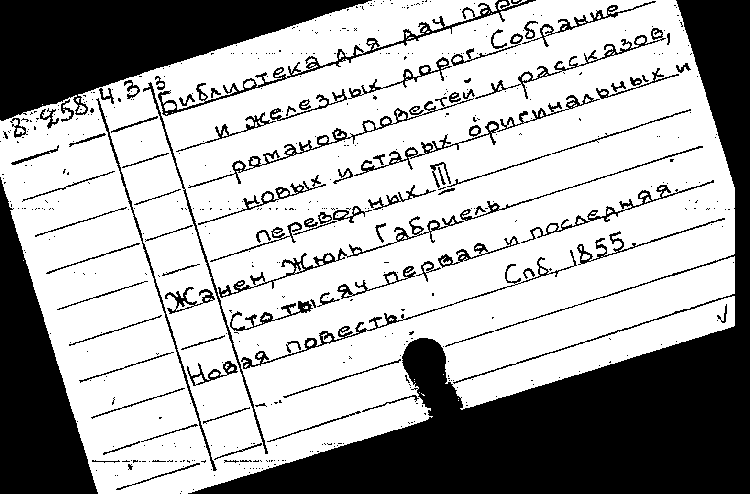 18.258.4.3-13
Библиотека для дач, паро
и железных дорог. Собрание
романов, повестей и рассказов,
новых и старых, оригинальных и
переводных. III.
Жанен, Жюль Габриель.
Сто тысяч первая и последняя.
Новая повесть. Спб, 1855.